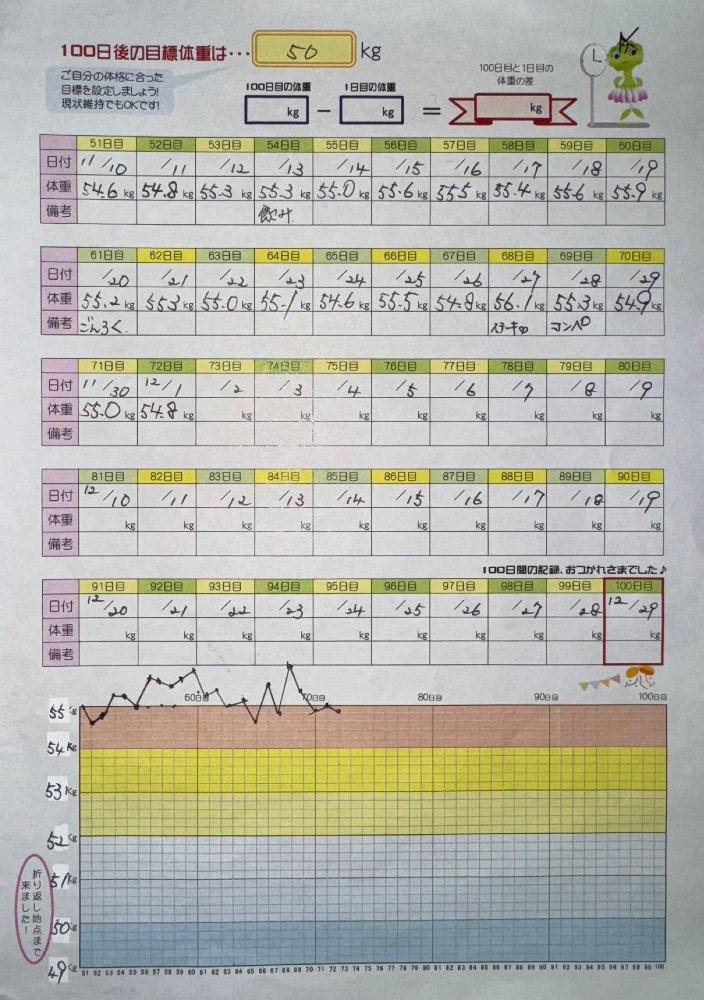 100日後の目標体重は・・・ 50 kg
ご自分の体格に合った
目標を設定しましょう!
現状維持でもOKです!
100日目の体重 kg － 1日目の体重 kg ＝ 100日目と1日目の体重の差 kg
51日目 52日目 53日目 54日目 55日目 56日目 57日目 58日目 59日目 60日目
日付 11/10 /11 /12 /13 /14 /15 /16 /17 /18 /19
体重 54.6 kg 54.8 kg 55.3 kg 55.3 kg 55.0 kg 55.6 kg 55.5 kg 55.4 kg 55.6 kg 55.9 kg
備考 飲み
61日目 62日目 63日目 64日目 65日目 66日目 67日目 68日目 69日目 70日目
日付 /20 /21 /22 /23 /24 /25 /26 /27 /28 /29
体重 55.2 kg 55.3 kg 55.0 kg 55.1 kg 54.6 kg 55.5 kg 54.8 kg 56.1 kg 55.3 kg 54.9 kg
備考 ごんろく. コンペ
71日目 72日目 73日目 74日目 75日目 76日目 77日目 78日目 79日目 80日目
日付 11/30 12/1 /2 /3 /4 /5 /6 /7 /8 /9
体重 55.0 kg 54.8 kg kg kg kg kg kg kg kg kg
備考
81日目 82日目 83日目 84日目 85日目 86日目 87日目 88日目 89日目 90日目
日付 12/10 /11 /12 /13 /14 /15 /16 /17 /18 /19
体重 kg kg kg kg kg kg kg kg kg kg
備考
100日間の記録、おつかれさまでした♪
91日目 92日目 93日目 94日目 95日目 96日目 97日目 98日目 99日目 100日目
日付 12/20 /21 /22 /23 /24 /25 /26 /27 /28 12/29
体重 kg kg kg kg kg kg kg kg kg kg
備考
60日目 70日目 80日目 90日目 100日目
55 kg
54 kg
53 kg
52 kg
51 kg
50 kg
49 kg
折り返し地点まで
来ました!
51 52 53 54 55 56 57 58 59 60 61 62 63 64 65 66 67 68 69 70 71 72 73 74 75 76 77 78 79 80 81 82 83 84 85 86 87 88 89 90 91 92 93 94 95 96 97 98 99 100